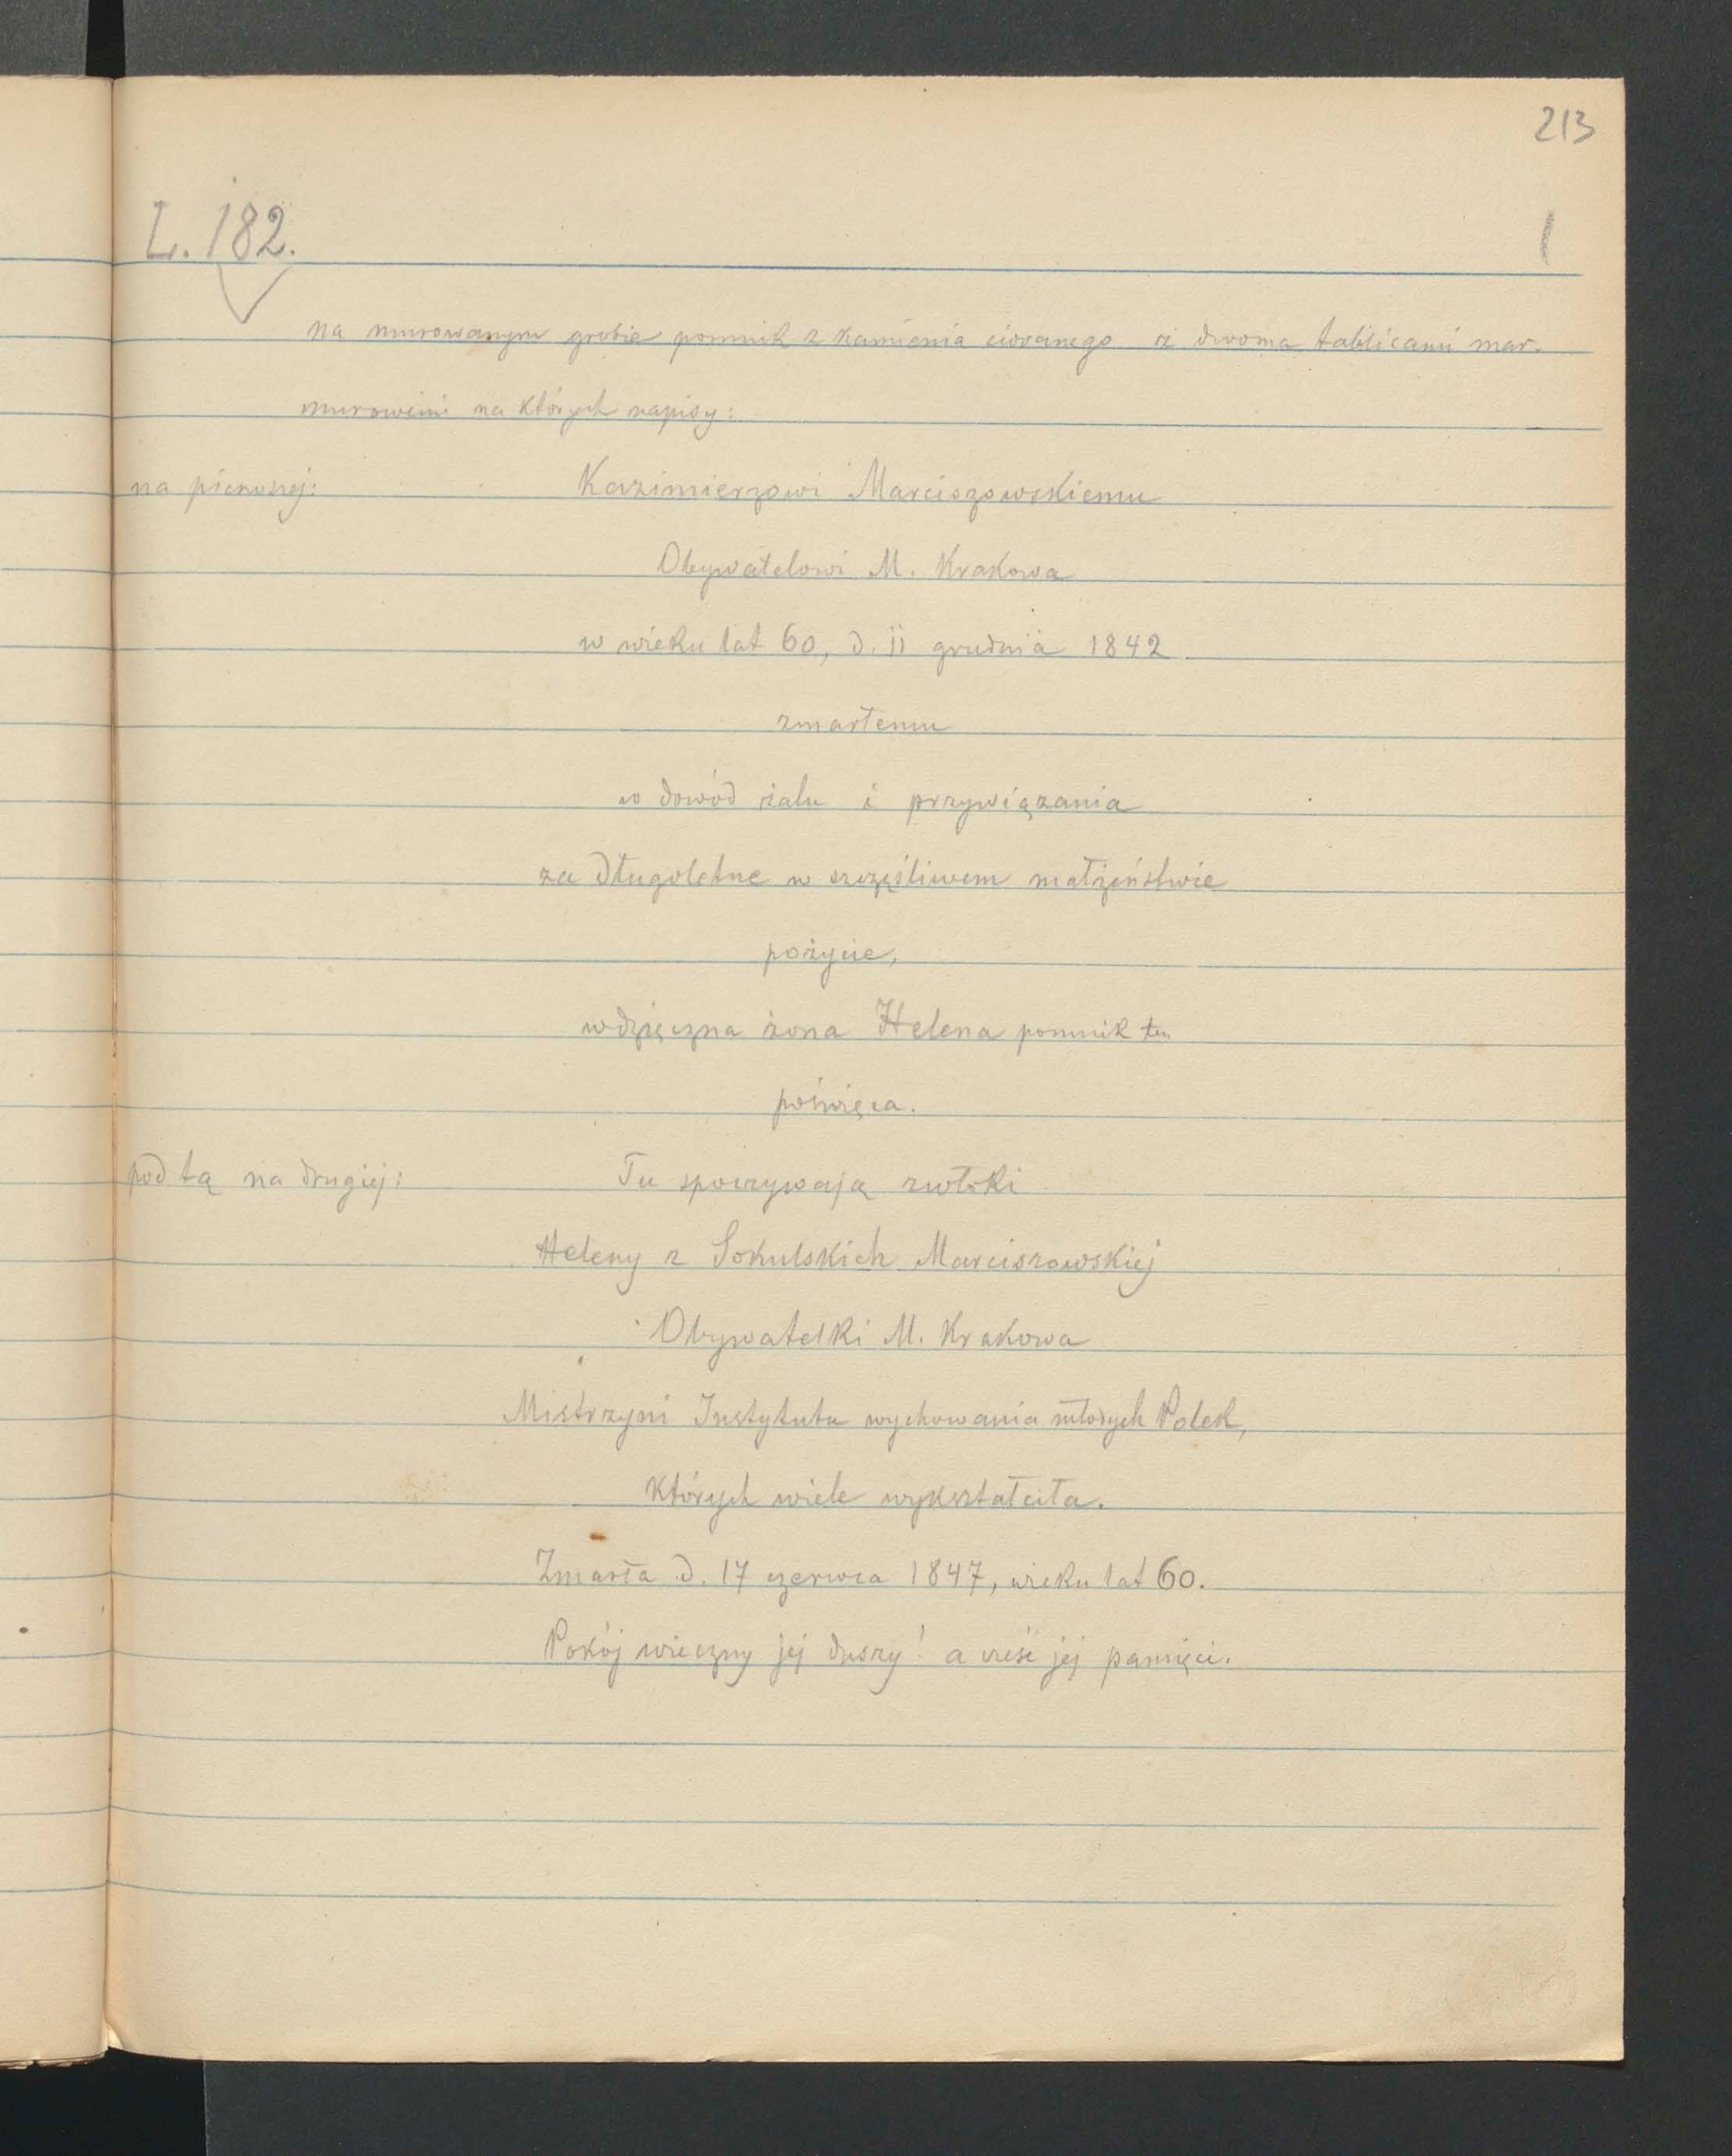 213
L. 182.
1
na murowanym grobie pomnik z kamienia ciosanego z dwoma tablicami mar-
murowemi na których napisy:
na pierwszej: Kazimierzowi Marciszowskiemu
Obywatelowi M. Krakowa
w wieku lat 60, d. 11 grudnia 1842
zmarłemu
w dowód żalu i przywiązania
za długoletne w szczęśliwem małżeństwie
pożycie,
wdzięczna żona Helena pomnik ten
poświęca.
pod tą na drugiej: Tu spoczywają zwłoki
Heleny z Sokulskich Marciszowskiej
Obywatelki M. Krakowa
Mistrzyni Instytutu wychowania młodych Polek,
których wiele wykształciła.
Zmarła d. 17 czerwca 1847, wieku lat 60.
Pokój wieczny jej duszy! a cześć jej pamięci.